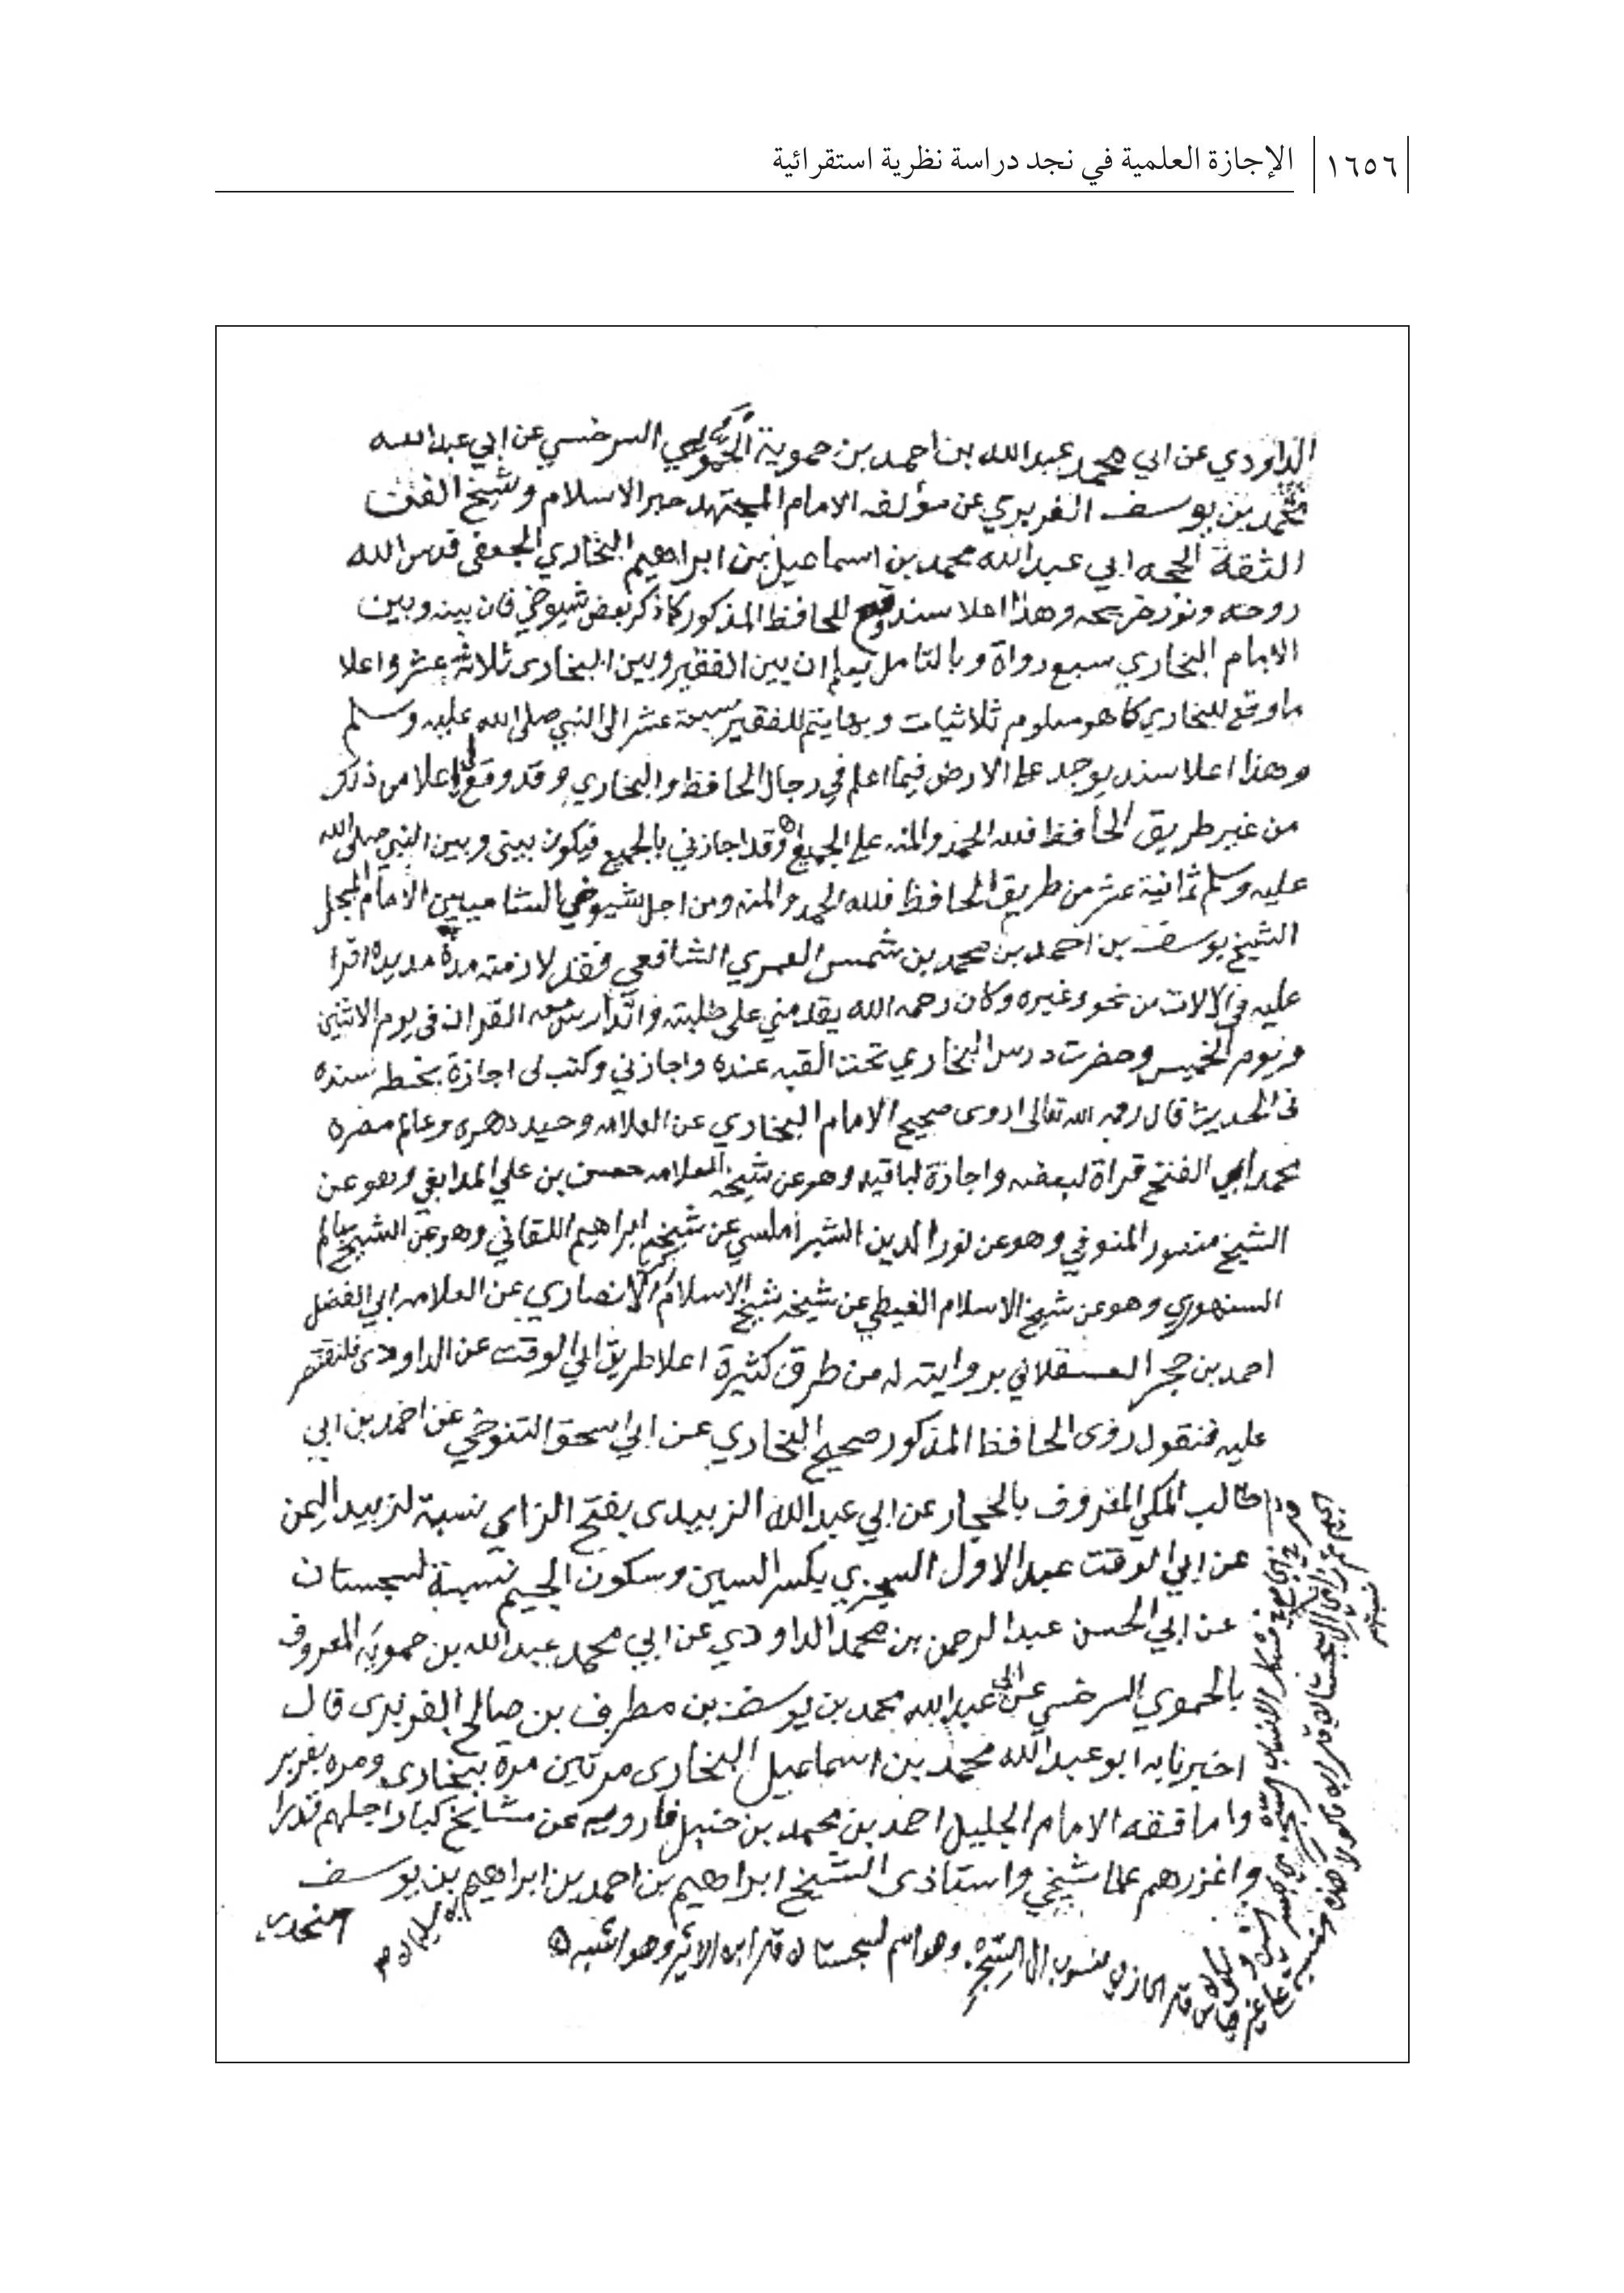 ١٦٥٦
الإجازة العلمية في نجد دراسة نظرية استقرائية
الداودي عن ابي محمد عبدالله بن احمد بن حموية الحموي السرخسي عن ابي عبدالله
محمد بن يوسف الفربري عن مؤلفه الامام المجتهد حبر الاسلام وشيخ الفن
الثقة الحجه ابي عبدالله محمد بن اسماعيل بن ابراهيم البخاري الجعفي قدس الله
روحه ونور ضريحه وهذا اعلا سند وقع للحافظ المذكور كما ذكر بعض شيوخي فان بينه وبين
الامام البخاري سبع رواة وبالتامل يعلم ان بين الفقير وبين البخارى ثلاثة عشر واعلا
ما وقع للبخاري كما هو معلوم ثلاثيات وبها يتم للفقير سبعة عشر الى النبي صلى الله عليه وسلم
وهذا اعلا سند يوجد على الارض فيما اعلم في رجال الحافظ والبخاري وقد وقع لي اعلا من ذلك
من غير طريق الحافظ فلله الحمد والمنه على الجميع وقد اجازني بالجميع فيكون بينى وبين النبي صلى الله
عليه وسلم ثمانية عشر من طريق الحافظ فلله الحمد والمنه ومن اجل شيوخي الشاميين الامام المبجل
الشيخ يوسف بن احمد بن محمد بن شمس العمري الشافعي فقد لازمته مدة مديده اقرا
عليه في الالات من نحو وغيره وكان رحمه الله يقدمني على طلبته واتدارس معه القران فى يوم الاثنين
ويوم الخميس وحضرت درس البخاري تحت القبه عنده واجازني وكتب لى اجازة بخطه سنده
فى الحديث قال رحمه الله تعالى اروى صحيح الامام البخاري عن العلامه وحيد دهره وعالم مصره
محمد ابي الفتح قراة لبعضه واجازة لباقيه وهو عن شيخه العلامه حسن بن علي المدابغي وهو عن
الشيخ منصور المنوفي وهو عن نور الدين الشبراملسي عن شيخه ابراهيم اللقاني وهو عن الشيخ سالم
السنهوري وهو عن شيخ الاسلام الغيطي عن شيخه شيخ الاسلام زكريا الانصاري عن العلامه ابي الفضل
احمد بن حجر العسقلاني بروايته له من طرق كثيرة اعلا طريق ابي الوقت عن الداودى فلنقتصر
عليه فنقول روى الحافظ المذكور صحيح البخاري عن ابي اسحق التنوخي عن احمد بن ابي
طالب المكي المعروف بالحجار عن ابي عبدالله الزبيدى بفتح الزاي نسبة لزبيد اليمن
عن ابي الوقت عبدالاول السجزي بكسر السين وسكون الجيم نسبة لسجستان
عن ابي الحسن عبدالرحمن بن محمد الداودي عن ابي محمد عبدالله بن حمويه المعروف
بالحموي السرخسي عن ابي عبدالله محمد بن يوسف بن مطرف بن صالح الفربرى قال
اخبرنا به ابو عبدالله محمد بن اسماعيل البخارى مرتين مرة ببخارى ومره بفربر
واما فقه الامام الجليل احمد بن محمد بن حنبل فارويه عن مشايخ كبار اجلهم قدرا
واغزرهم علما شيخي واستاذى الشيخ ابراهيم بن احمد بن ابراهيم بن يوسف
النجدي
منسوب الى السجز وهو اسم لسجستان قاله ابن الاثير وهو اشبه